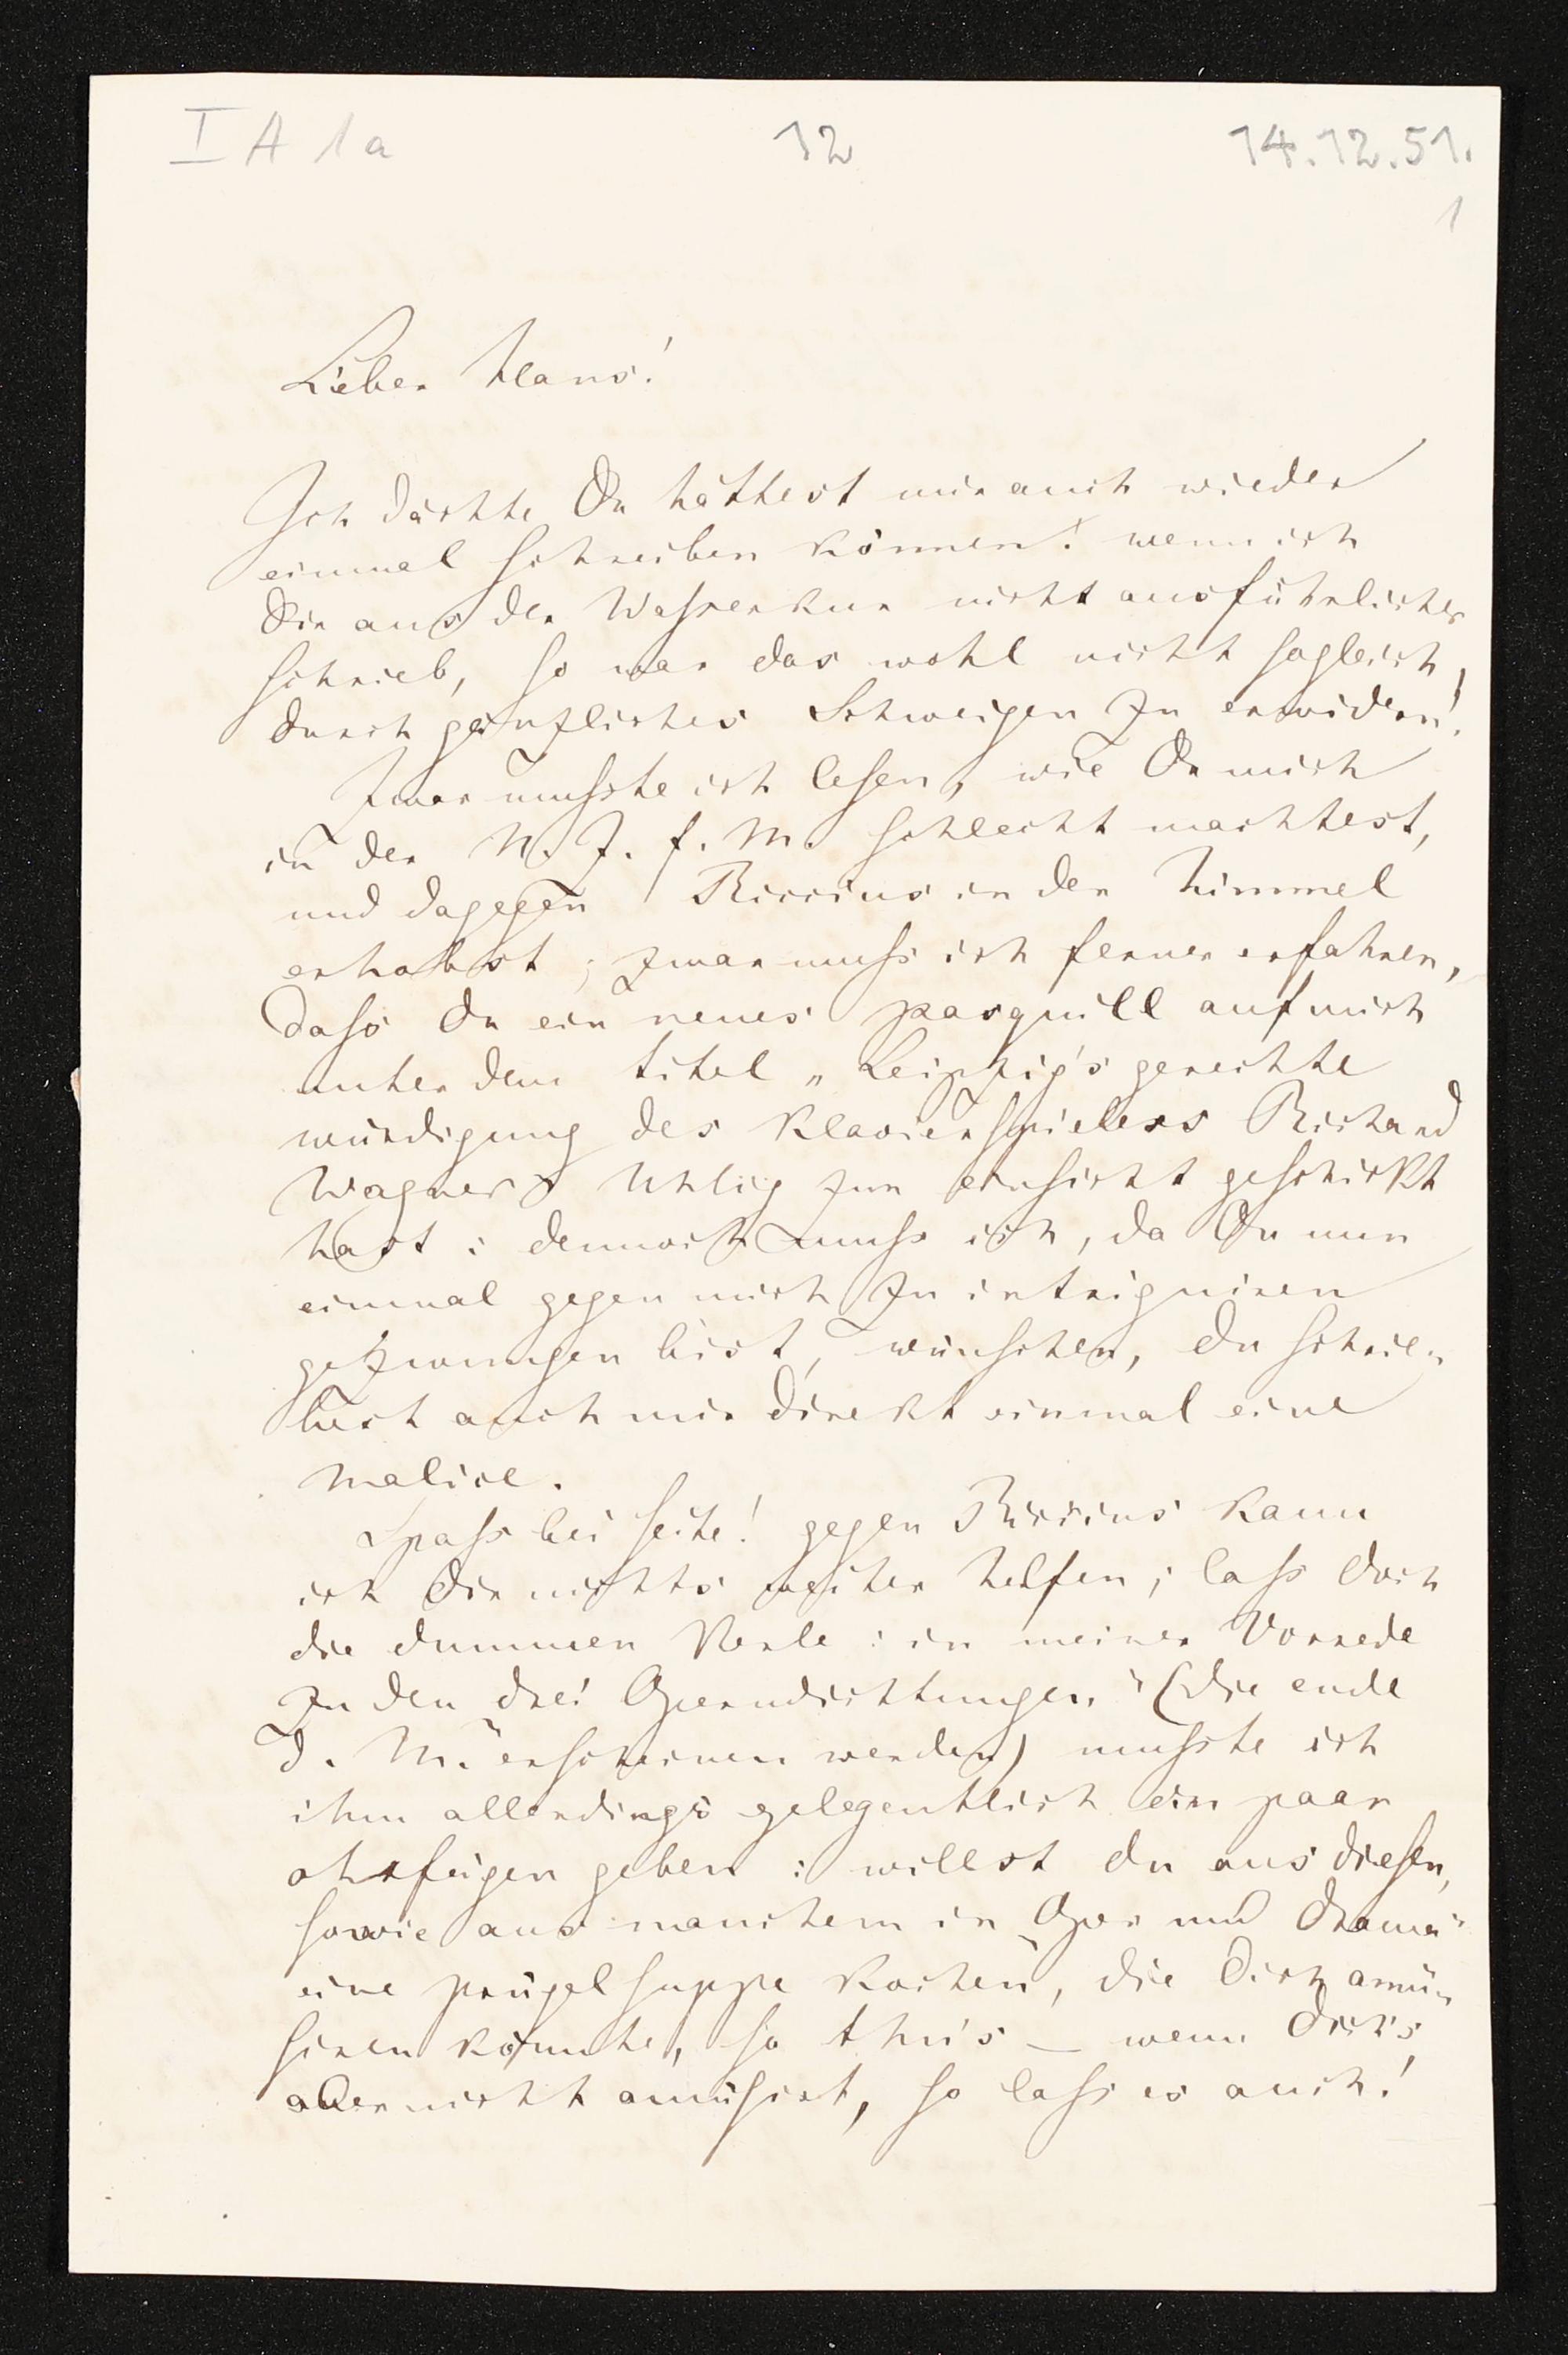 I A 1a 12 14.12.51.
1
Lieber Hans!
Ich dächte Du hättest mir auch wieder
einmal schreiben können! wenn ich
Dir aus der Wasserkur nicht ausführlicher
schrieb, so war das wohl nicht sogleich
durch gänzliches Schweigen zu erwidern!
Zwar musste ich lesen, wie Du mich
in der N. Z. f. M. schlecht machtest,
und dagegen Riccius in den Himmel
erhobst; zwar muss ich ferner erfahren,
dass du ein neues pasquill auf mich
unter dem titel „Leipzig's gerechte
würdigung des Klavierspielers Richard
Wagner" Uhlig zur einsicht geschickt
hast: dennoch muss ich, da Du nun
einmal gegen mich zu intriguiren
gezwungen bist, wünschen, du schrie-
best auch mir direkt einmal eine
malice.
Spass bei seite! gegen Riccius kann
ich dir nichts weiter helfen; lass doch
die dummen Kerle: in meiner Vorrede
zu den „drei Operndichtungen" (die ende
d. M. erscheinen werden) musste ich
ihm allerdings gelegentlich ein paar
ohrfeigen geben: willst du aus diesen,
sowie aus manchem in „Oper und Drama"
eine prügelsuppe kochen, die Dich amü-
siren könnte, so thu's – wenn Dich's
aber nicht amüsirt, so lass es auch!